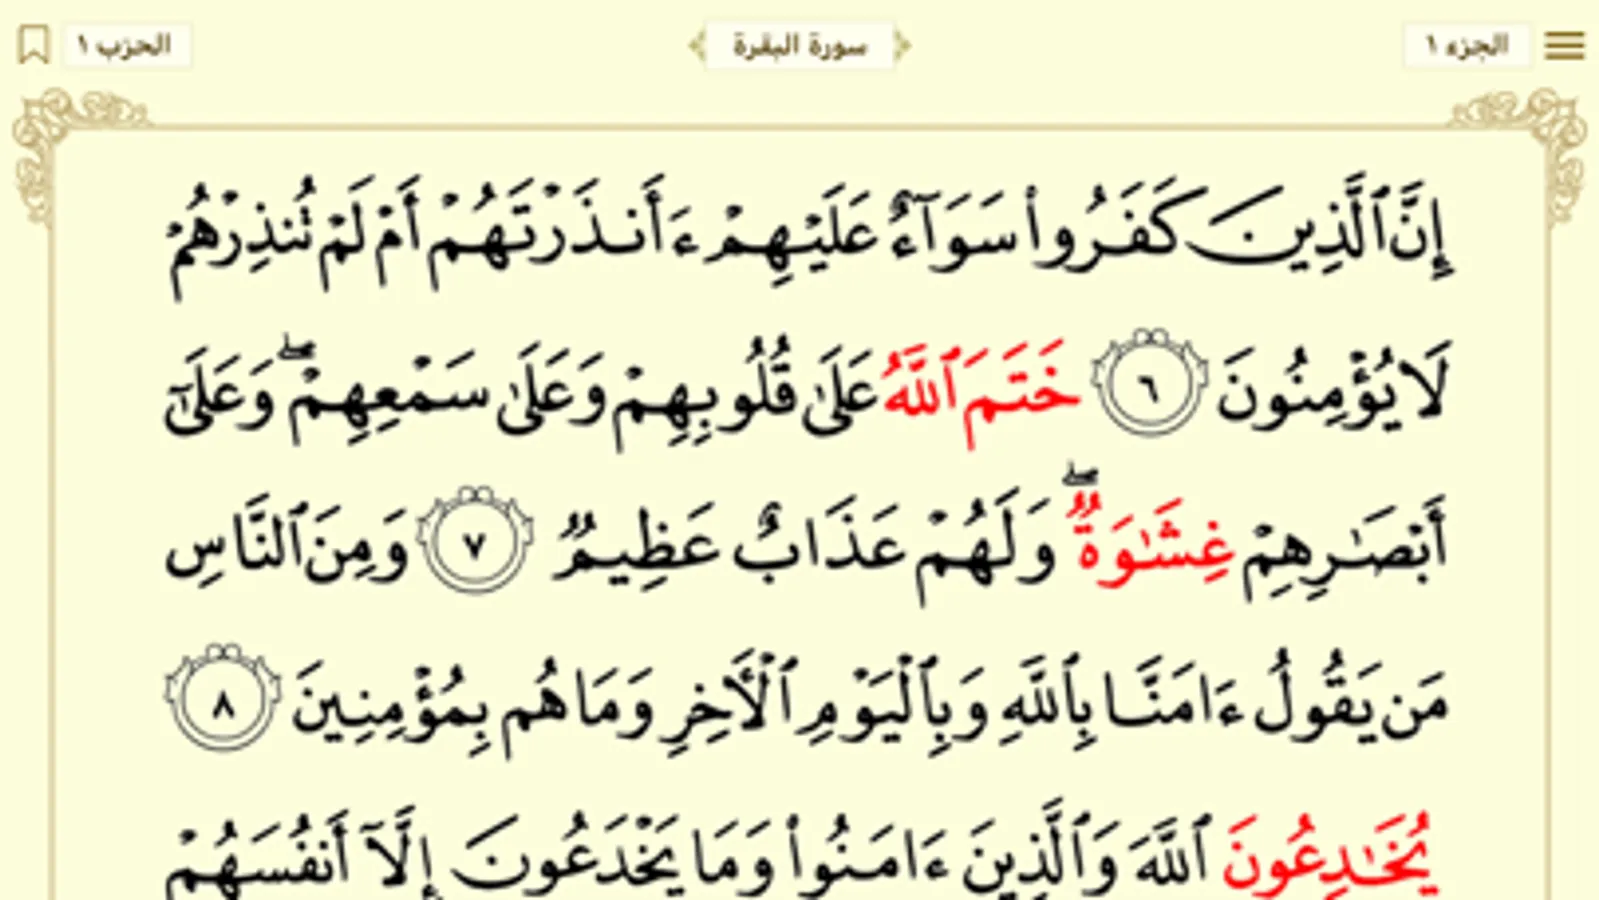 الجزء ١
سورة البقرة
الحزب ١
إِنَّ ٱلَّذِينَ كَفَرُوا۟ سَوَآءٌ عَلَيْهِمْ ءَأَنذَرْتَهُمْ أَمْ لَمْ تُنذِرْهُمْ
لَا يُؤْمِنُونَ ٦ خَتَمَ ٱللَّهُ عَلَىٰ قُلُوبِهِمْ وَعَلَىٰ سَمْعِهِمْ ۖ وَعَلَىٰٓ
أَبْصَـٰرِهِمْ غِشَـٰوَةٌ ۖ وَلَهُمْ عَذَابٌ عَظِيمٌ ٧ وَمِنَ ٱلنَّاسِ
مَن يَقُولُ ءَامَنَّا بِٱللَّهِ وَبِٱلْيَوْمِ ٱلْـَٔاخِرِ وَمَا هُم بِمُؤْمِنِينَ ٨
يُخَـٰدِعُونَ ٱللَّهَ وَٱلَّذِينَ ءَامَنُوا۟ وَمَا يَخْدَعُونَ إِلَّآ أَنفُسَهُمْ